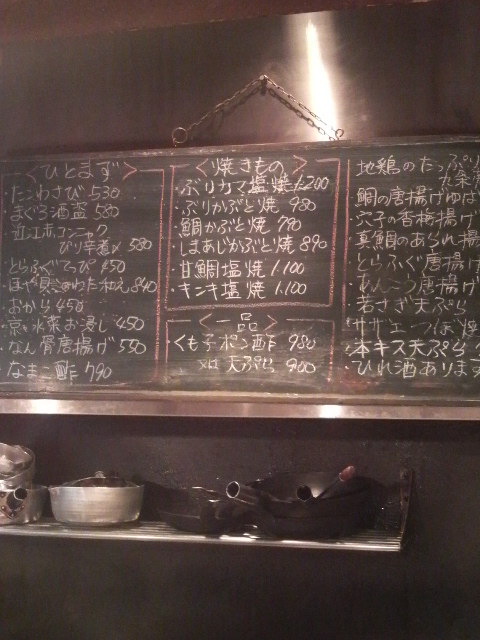 <ひとまず>
・たこわさび 530
・まぐろ酒盗 580
近江赤コンニャク
ぴり辛煮 580
・とらふぐてっぴ 450
・ほや 和え 840
・おから 450
・京水菜お浸し 450
・なん骨唐揚げ 550
・なまこ酢 790
<焼きもの>
・ぶりカマ塩焼 1.200
・ぶりかぶと焼 980
・鯛かぶと焼 790
・しまあじかぶと焼 890
・甘鯛塩焼 1.100
・キンキ塩焼 1.100
<一品>
・くも子ポン酢 980
〃 天ぷら 900
地鶏のたっぷり
九条
鯛の唐揚げゆば
穴子の香梅揚げ
真鯛のあられ揚
とらふぐ唐揚げ
あんこう唐揚げ
若さぎ天ぷら
サザエつぼ焼
・本キス天ぷら
・ひれ酒あります